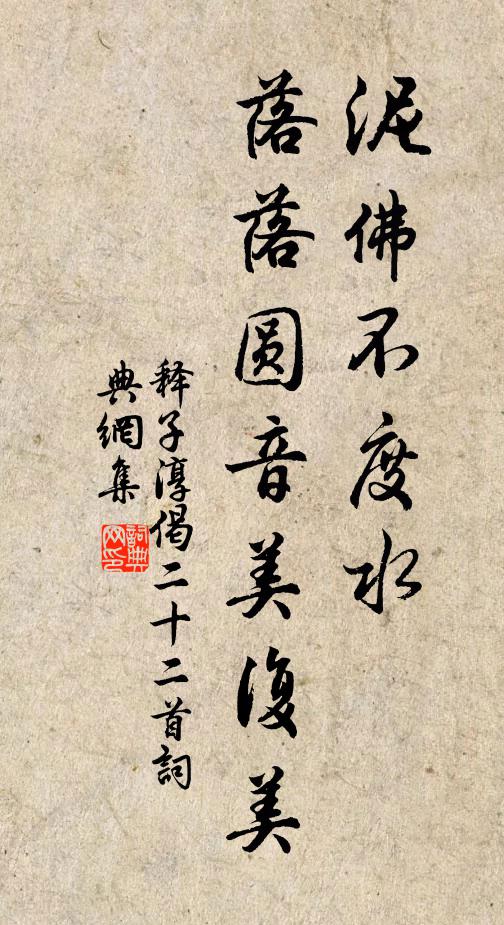 泥佛不度水
落落圆音美復美
释子淳偈二十二首詞
典網集
詞典网印